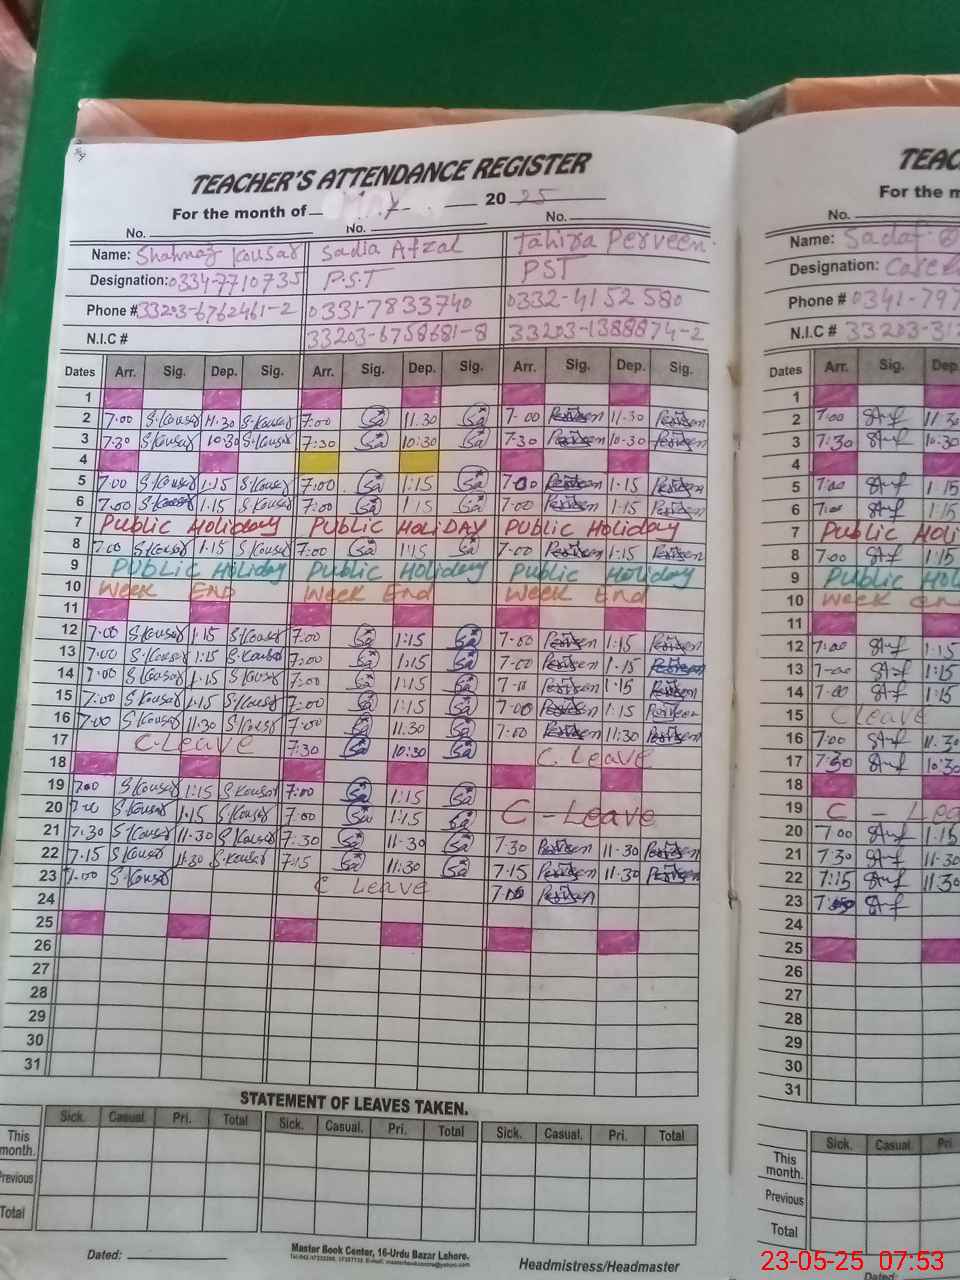 TEACHER'S ATTENDANCE REGISTER
For the month of May 2025
No. No. No.
Name: Shahnaz Kousar Sadia Afzal Tahira Perveen.
Designation: 0334-7710735 P.S.T PST
Phone # 33203-6762461-2 0331-7833740 0332-4152580
N.I.C # 33203-6758681-8 33203-1388874-2
Dates Arr. Sig. Dep. Sig. Arr. Sig. Dep. Sig. Arr. Sig. Dep. Sig.
1
2 7:00 S.Kousar 11.30 S.Kousar 7:00 Sa 11.30 Sa 7-00 Perveen 11.30 Perveen
3 7:30 S.Kousar 10:30 S.Kousar 7:30 Sa 10:30 Sa 7-30 Perveen 10-30 Perveen
4
5 7:00 S.Kousar 1:15 S.Kousar 7:00 Sa 1:15 Sa 7-00 Perveen 1-15 Perveen
6 7.00 S.Kousar 1.15 S.Kousar 7:00 Sa 1:15 Sa 7-00 Perveen 1-15 Perveen
7 Public Holiday Public HoliDAY Public Holiday
8 7:00 S.Kousar 1:15 S.Kousar 7:00 Sa 1:15 Sa 7-00 Perveen 1-15 Perveen
9 Public Holiday Public Holiday Public Holiday
10 Week End Week End Week End
11
12 7:00 S.Kousar 1:15 S.Kousar 7:00 Sa 1:15 Sa 7-00 Perveen 1:15 Perveen
13 7:00 S.Kousar 1:15 S.Kousar 7:00 Sa 1:15 Sa 7-00 Perveen 1-15 Perveen
14 7:00 S.Kousar 1:15 S.Kousar 7:00 Sa 1:15 Sa Perveen 1-15 Perveen
15 7:00 S.Kousar 1:15 S.Kousar 7:00 Sa 1:15 Sa 7-00 Perveen 1-15 Perveen
16 7:00 S.Kousar 11:30 S.Kousar 7:00 Sa 11.30 Sa 7:00 Perveen 11.30 Perveen
17 C.Leave 7:30 Sa 10:30 Sa C.Leave
18
19 7:00 S.Kousar 1:15 S.Kousar 7:00 Sa 1:15 Sa
20 S.Kousar 1.15 S.Kousar 7:00 Sa 1:15 Sa C - Leave
21 7.30 S.Kousar 11.30 S.Kousar 7:30 Sa 11.30 Sa 7.30 Perveen 11.30 Perveen
22 7.15 S.Kousar 11:30 S.Kousar 7:15 Sa 11:30 Sa 7.15 Perveen 11.30 Perveen
23 7:00 S.Kousar C Leave Perveen
24
25
26
27
28
29
30
31
STATEMENT OF LEAVES TAKEN.
Sick. Casual. Pri. Total Sick. Casual. Pri. Total Sick. Casual. Pri. Total
This month.
Previous
Total
Dated:
Master Book Center, 16-Urdu Bazar Lahore.
Headmistress/Headmaster
TEAC
For the m
No.
Name: Sadaf
Designation:
Phone # 0341-797
N.I.C # 33203-31
Dates Arr. Sig. Dep
1
2 7:00 11.30
3 7:30 10.30
4
5 7:00 1.15
6 7:00 1.15
7 Public Holi
8 7:00 1:15
9 Public Hol
10 Week End
11
12 7:00 1.15
13 7-00 1:15
14 7-00 1:15
15 C Leave
16 7:00 11.30
17 7:30 10:30
18
19 C - Lea
20 7.00 1.15
21 7:30 11.30
22 7:15 11.30
23
24
25
26
27
28
29
30
31
Sick. Casual. Pri
This month.
Previous
Total
Dated:
23-05-25 07:53